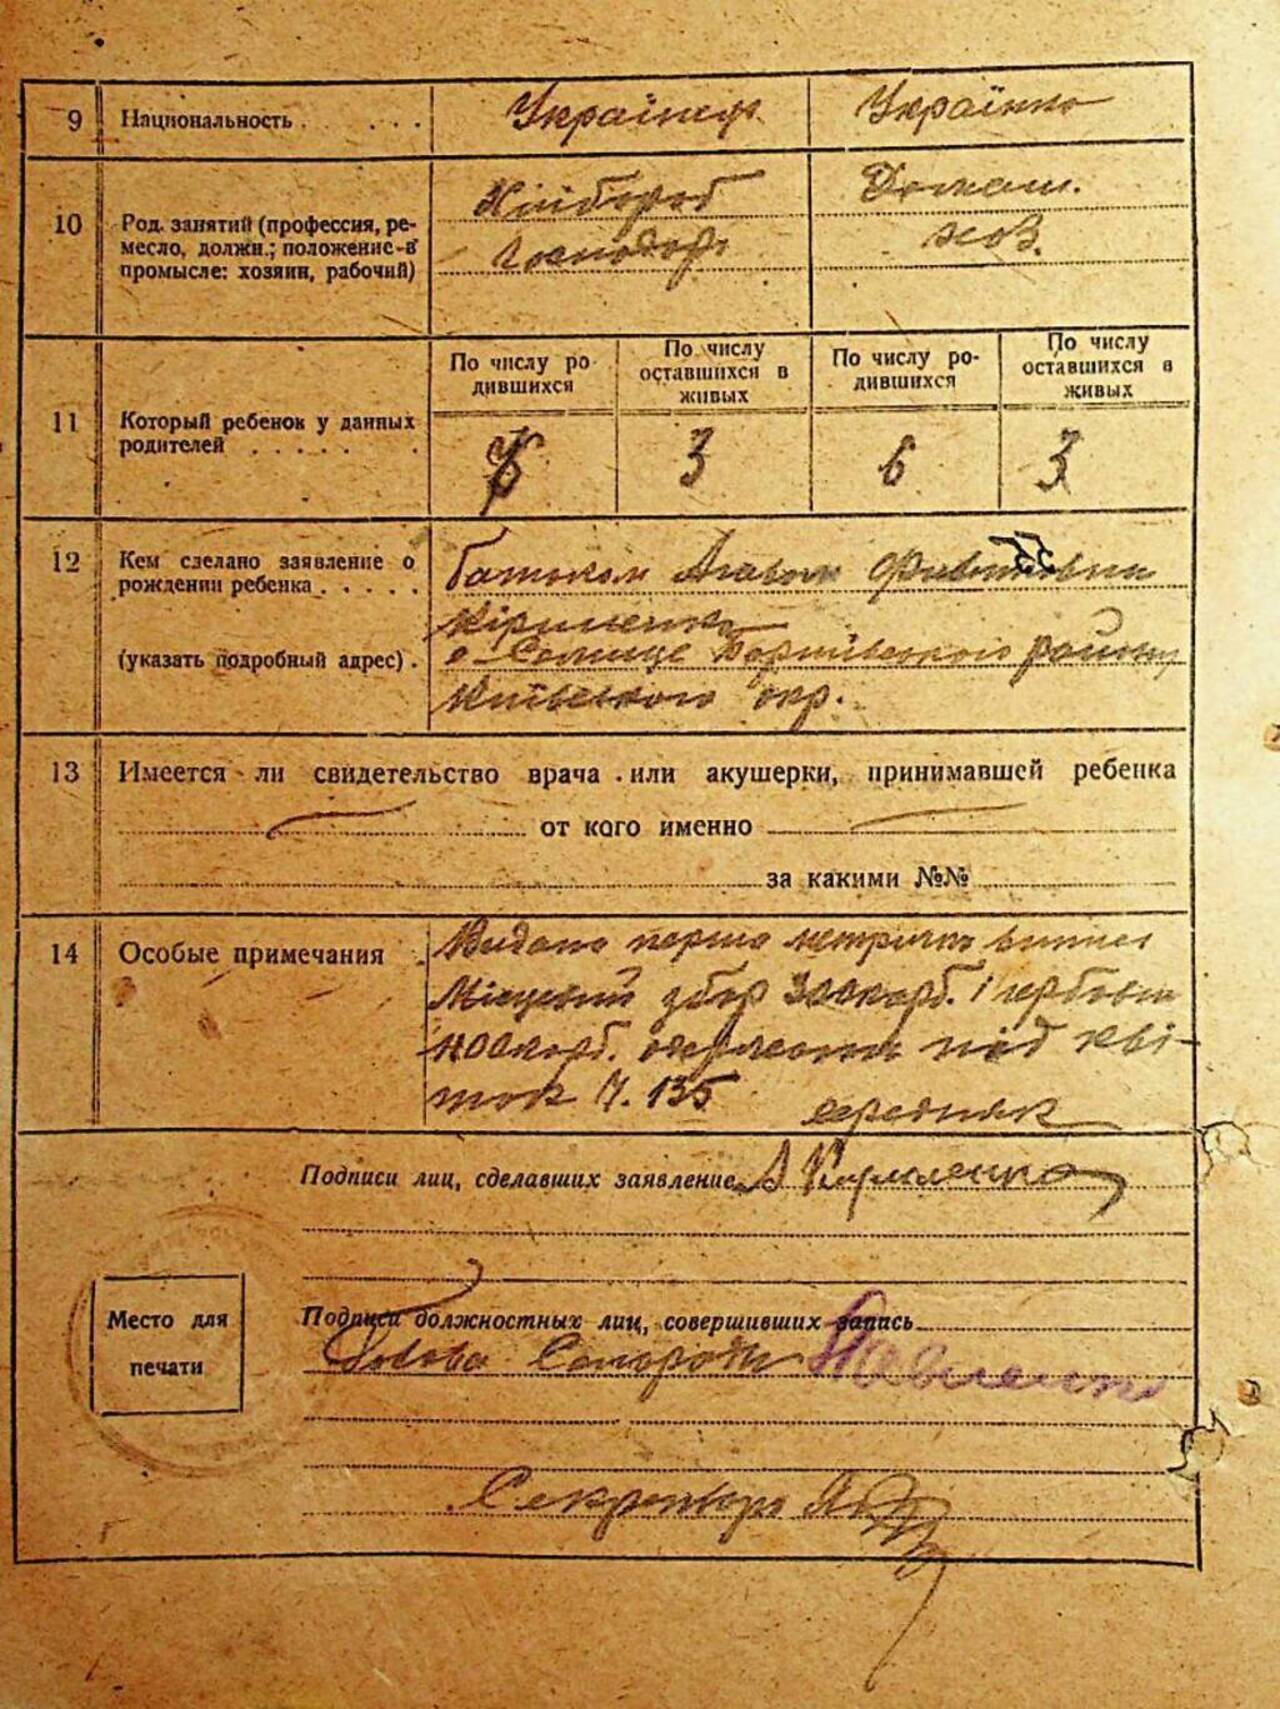 9 Национальность . . . . Українець Українка
10 Род. занятий (профессия, ре-
месло, должн.; положение в
промысле: хозяин, рабочий)
Хлібороб
господар
Домаш.
хоз.
11 Который ребенок у данных
родителей . . . . . .
По числу ро-
дившихся
По числу
оставшихся в
живых
По числу ро-
дившихся
По числу
оставшихся в
живых
6 3 6 3
12 Кем сделано заявление о
рождении ребенка . . . . .
(указать подробный адрес) .
батьком
Кириленко
районну
Київського окр.
13 Имеется ли свидетельство врача или акушерки, принимавшей ребенка
от кого именно
за какими №№
14 Особые примечания
Видано перша метрична випись
Місцевий збор 300 карб. і гербовий
400 карб. під кві-
ток Ч. 135 середняк
Подписи лиц, сделавших заявление А Кириленко
Подписи должностных лиц, совершивших запись
Голова Павленко
Секретарь
Место для
печати